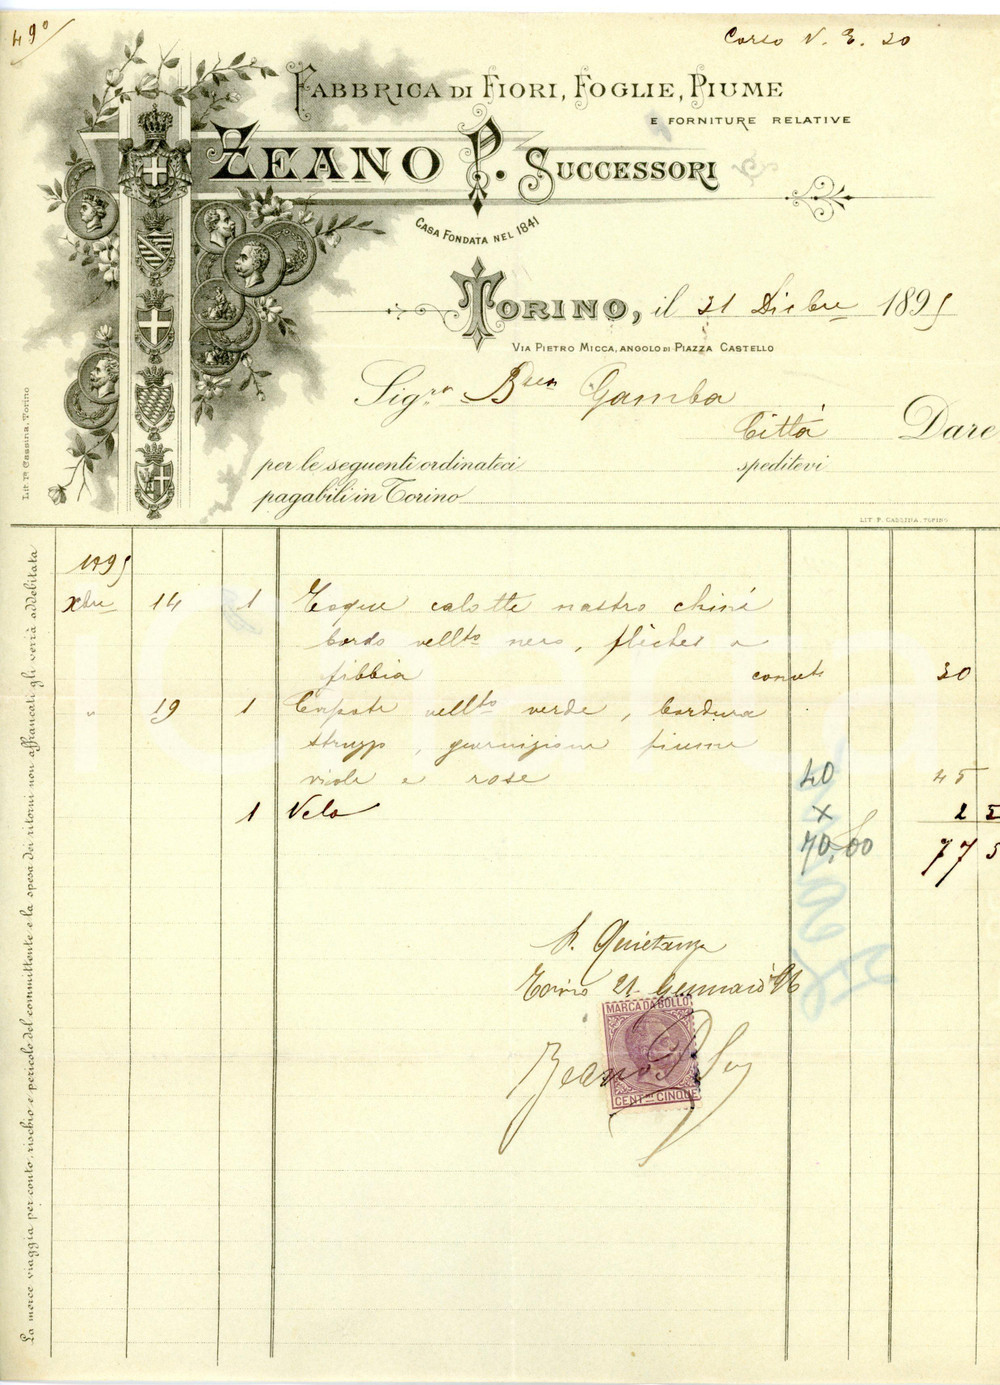 49°
Corso V. E. 30
FABBRICA DI FIORI, FOGLIE, PIUME
E FORNITURE RELATIVE
ZEANO P. SUCCESSORI
CASA FONDATA NEL 1841
TORINO, il 31 Dicbre 1895
VIA PIETRO MICCA, ANGOLO DI PIAZZA CASTELLO
Sigra Bnen Gamba
Città Dare
per le seguenti ordinateci speditevi
pagabili in Torino
LIT. P. CASSINA, TORINO
Lit. Pe Cassina, Torino
La merce viaggia per conto, rischio e pericolo del committente e la spesa dei ritorni non affrancati gli verrà addebitata
1895
Xbre 14 1 Toque calotte nastro chiné
bordo vellto nero, flèches e
fibbia 30
" 19 1 Capote vellto verde, bordura
struzzo, guarnizione piume
viole e rose 40 45
1 Velo x 2 5
70,50 77 5
P. Quietanza
Torino 21 Gennaio 96
MARCA DA BOLLO
Zeano P. Suc
CENTmi CINQUE